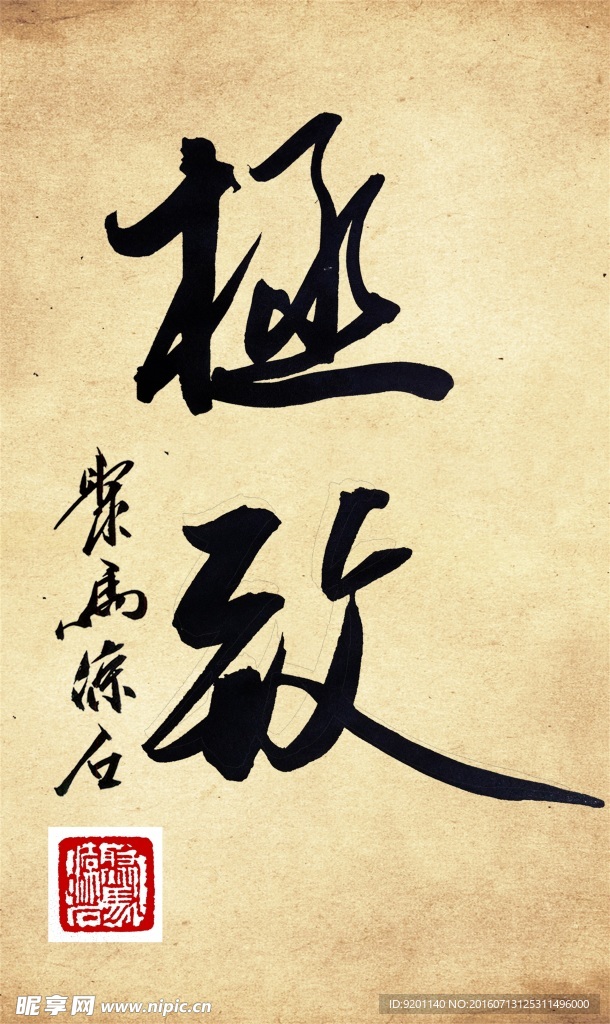 極致
聚馬涼石
昵享网 www.nipic.cn
ID:9201140 NO:20160713125311496000